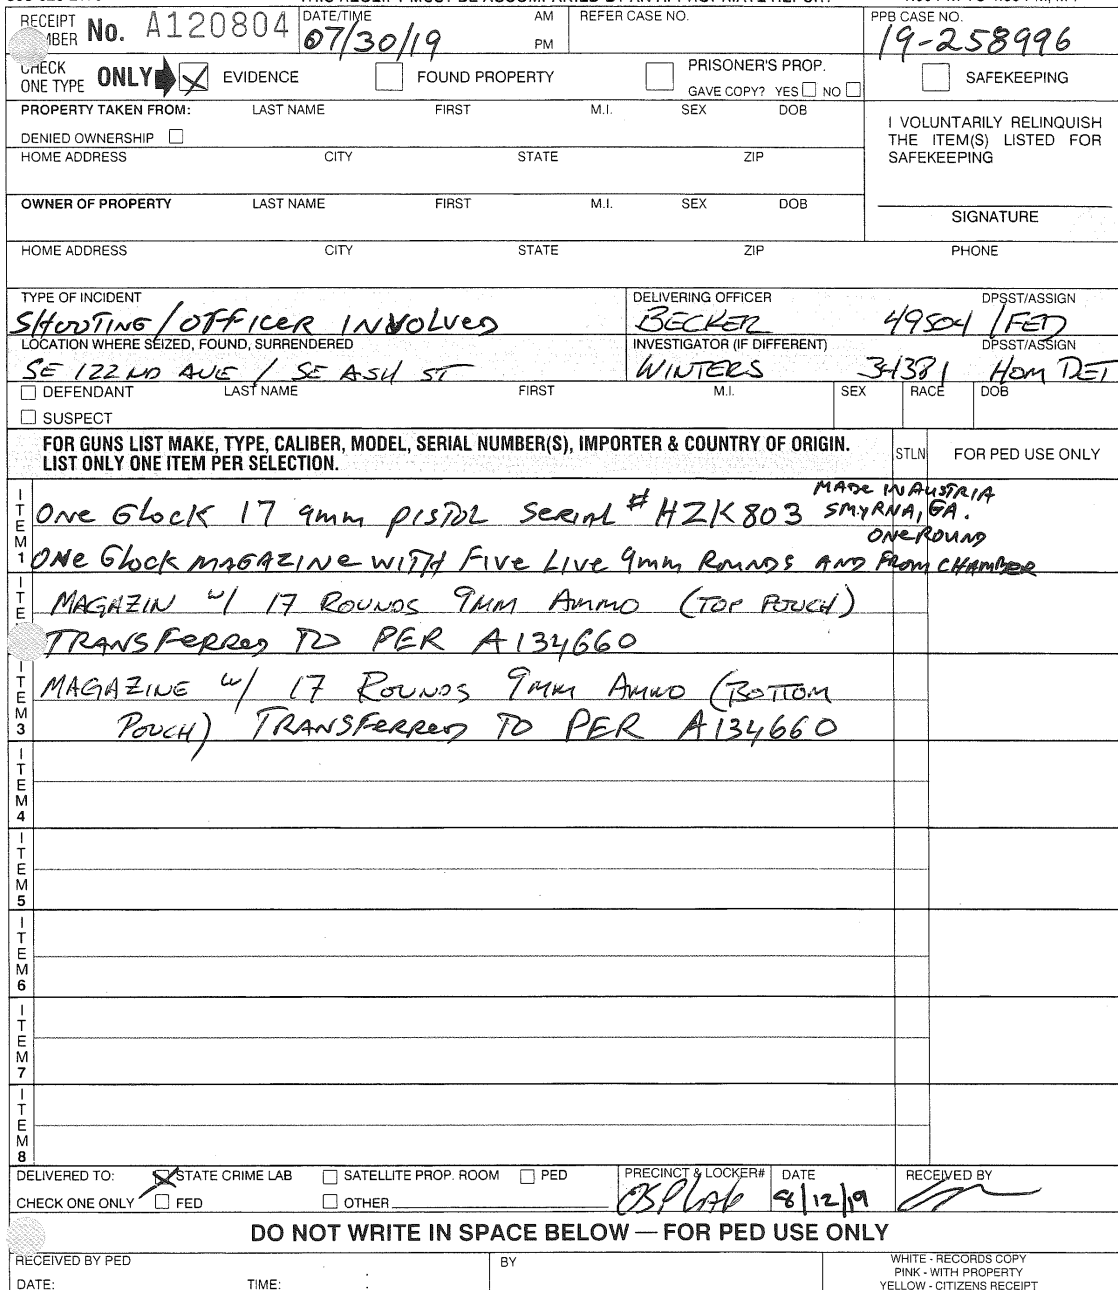 RECEIPT NUMBER No. A120804 DATE/TIME 07/30/19 AM PM REFER CASE NO. PPB CASE NO. 19-258996
CHECK ONE TYPE ONLY EVIDENCE FOUND PROPERTY PRISONER'S PROP. GAVE COPY? YES NO SAFEKEEPING
PROPERTY TAKEN FROM: LAST NAME FIRST M.I. SEX DOB
DENIED OWNERSHIP
I VOLUNTARILY RELINQUISH
THE ITEM(S) LISTED FOR
SAFEKEEPING
HOME ADDRESS CITY STATE ZIP
OWNER OF PROPERTY LAST NAME FIRST M.I. SEX DOB
SIGNATURE
HOME ADDRESS CITY STATE ZIP PHONE
TYPE OF INCIDENT DELIVERING OFFICER DPSST/ASSIGN
SHOOTING/OFFICER INVOLVED BECKER 49504 /FED
LOCATION WHERE SEIZED, FOUND, SURRENDERED INVESTIGATOR (IF DIFFERENT) DPSST/ASSIGN
SE 122ND AVE / SE ASH ST WINTERS 34381 HOM DET
DEFENDANT LAST NAME FIRST M.I. SEX RACE DOB
SUSPECT
FOR GUNS LIST MAKE, TYPE, CALIBER, MODEL, SERIAL NUMBER(S), IMPORTER & COUNTRY OF ORIGIN.
LIST ONLY ONE ITEM PER SELECTION.
STLN FOR PED USE ONLY
ITEM 1
MADE IN AUSTRIA
ONE GLOCK 17 9mm PISTOL SERIAL # HZK803 SMYRNA, GA.
ONE ROUND
ONE GLOCK MAGAZINE WITH FIVE LIVE 9mm ROUNDS AND FROM CHAMBER
ITE
MAGAZIN w/ 17 ROUNDS 9MM AMMO (TOP POUCH)
TRANSFERRED TO PER A134660
ITEM 3
MAGAZINE w/ 17 ROUNDS 9MM AMMO (BOTTOM
POUCH) TRANSFERRED TO PER A134660
ITEM 4
ITEM 5
ITEM 6
ITEM 7
ITEM 8
DELIVERED TO: STATE CRIME LAB SATELLITE PROP. ROOM PED PRECINCT & LOCKER# DATE RECEIVED BY
CHECK ONE ONLY FED OTHER OSP LAB 8/12/19
DO NOT WRITE IN SPACE BELOW — FOR PED USE ONLY
RECEIVED BY PED BY
DATE: TIME: :
WHITE - RECORDS COPY
PINK - WITH PROPERTY
YELLOW - CITIZENS RECEIPT